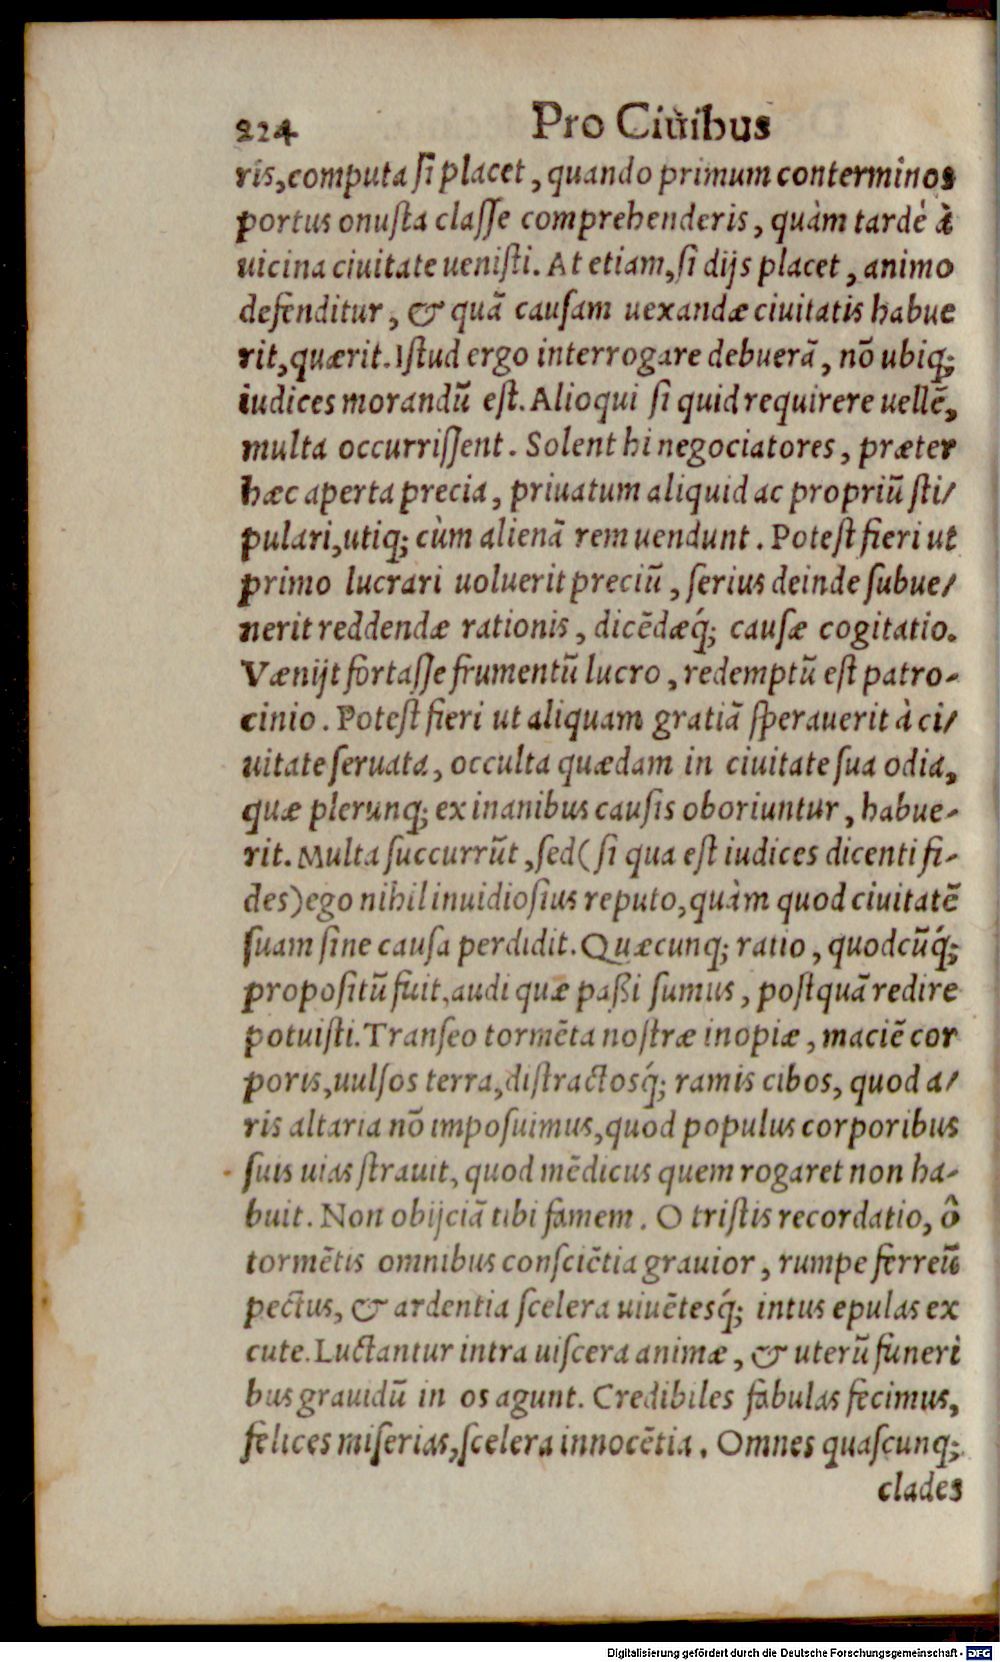 224 Pro Ciuibus
ris, computa ſi placet, quando primum conterminos
portus onuſta claſſe comprehenderis, quàm tardè à
uicina ciuitate ueniſti. At etiam, ſi dijs placet, animo
defenditur, & quã cauſam uexandæ ciuitatis habue
rit, quærit. Iſtud ergo interrogare debuerã, nõ ubiq;
iudices morandũ eſt. Alioqui ſi quid requirere uellẽ,
multa occurriſſent. Solent hi negociatores, præter
hæc aperta precia, priuatum aliquid ac propriũ ſti/
pulari, utiq; cùm alienã rem uendunt. Poteſt fieri ut
primo lucrari uoluerit preciũ, ſerius deinde ſubue/
nerit reddendæ rationis, dicẽdæq́; cauſæ cogitatio.
Vænijt fortaſſe frumentũ lucro, redemptũ eſt patro-
cinio. Poteſt fieri ut aliquam gratiã ſperauerit à ci/
uitate ſeruata, occulta quædam in ciuitate ſua odia,
quæ plerunq; ex inanibus cauſis oboriuntur, habue-
rit. Multa ſuccurrũt, ſed (ſi qua eſt iudices dicenti fi-
des) ego nihil inuidioſius reputo, quàm quod ciuitatẽ
ſuam ſine cauſa perdidit. Quæcunq; ratio, quodcũq́;
propoſitũ fuit, audi quæ paßi ſumus, poſtquã redire
potuiſti. Tranſeo tormẽta noſtræ inopiæ, maciẽ cor
poris, uulſos terra, diſtractosq́; ramis cibos, quod a/
ris altaria nõ impoſuimus, quod populus corporibus
ſuis uias ſtrauit, quod mẽdicus quem rogaret non ha-
buit. Non obijciã tibi famem. O triſtis recordatio, ô
tormẽtis omnibus conſciẽtia grauior, rumpe ferreũ
pectus, & ardentia ſcelera uiuẽtesq́; intus epulas ex
cute. Luctantur intra uiſcera animæ, & uterũ funeri
bus grauidũ in os agunt. Credibiles fabulas fecimus,
felices miſerias, ſcelera innocẽtia. Omnes quaſcunq;
clades
Digitalisierung gefördert durch die Deutsche Forschungsgemeinschaft - DFG